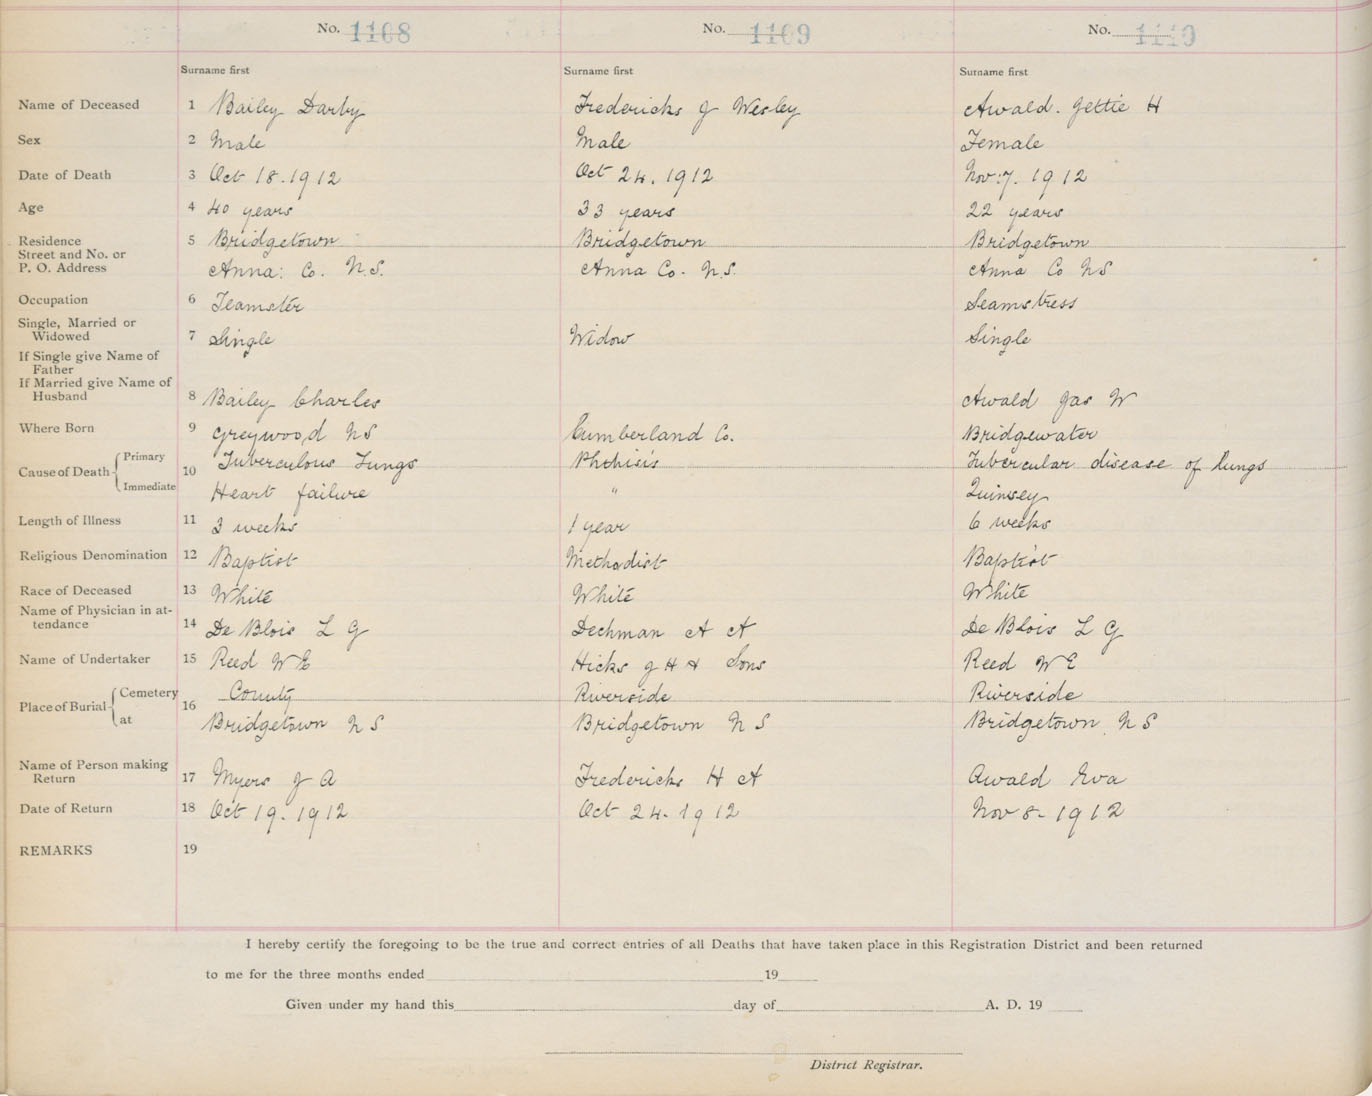 No. 1108 No. 1109 No. 1110
Surname first Surname first Surname first
Name of Deceased 1 Bailey Darby Fredericks J Wesley Awald. Gettie H
Sex 2 Male Male Female
Date of Death 3 Oct 18. 1912 Oct 24. 1912 Nov: 7. 1912
Age 4 40 years 33 years 22 years
Residence 5 Bridgetown Bridgetown Bridgetown
Street and No. or
P. O. Address Anna: Co. N.S. Anna Co. N.S. Anna Co NS
Occupation 6 Teamster Seamstress
Single, Married or
Widowed 7 Single Widow Single
If Single give Name of
Father
If Married give Name of
Husband 8 Bailey Charles Awald Jas W
Where Born 9 Greywood NS Cumberland Co. Bridgewater
Cause of Death Primary 10 Tuberculous Lungs Phthisis Tubercular disease of lungs
Immediate Heart failure " Quinsey
Length of Illness 11 3 weeks 1 year 6 weeks
Religious Denomination 12 Baptist Methodist Baptist
Race of Deceased 13 White White White
Name of Physician in at-
tendance 14 De Blois L G Dechman A A De Blois L G
Name of Undertaker 15 Reed W E Hicks J H & Sons Reed W E
Place of Burial Cemetery 16 County Riverside Riverside
at Bridgetown N S Bridgetown N S Bridgetown N S
Name of Person making
Return 17 Myers J A Fredericks H A Awald Eva
Date of Return 18 Oct 19. 1912 Oct 24. 1912 Nov 8- 1912
REMARKS 19
I hereby certify the foregoing to be the true and correct entries of all Deaths that have taken place in this Registration District and been returned
to me for the three months ended 19
Given under my hand this day of A. D. 19
District Registrar.